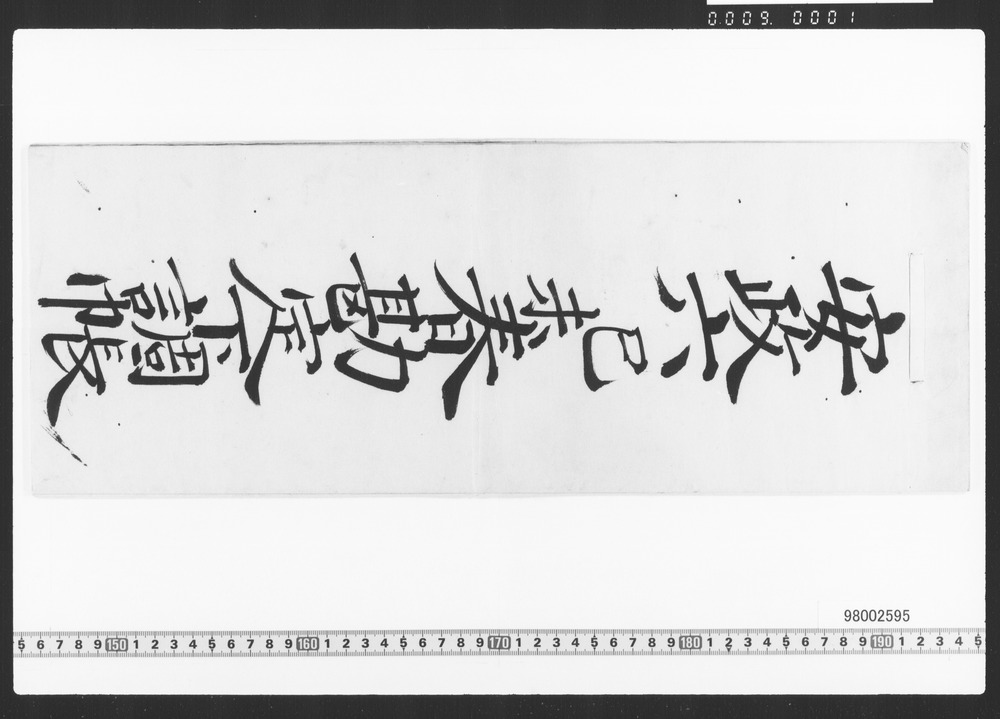 安政六
己未
春
勘定下調帳
0.009. 0001
98002595
5 6 7 8 9 150 1 2 3 4 5 6 7 8 9 160 1 2 3 4 5 6 7 8 9 170 1 2 3 4 5 6 7 8 9 180 1 2 3 4 5 6 7 8 9 190 1 2 3 4 5